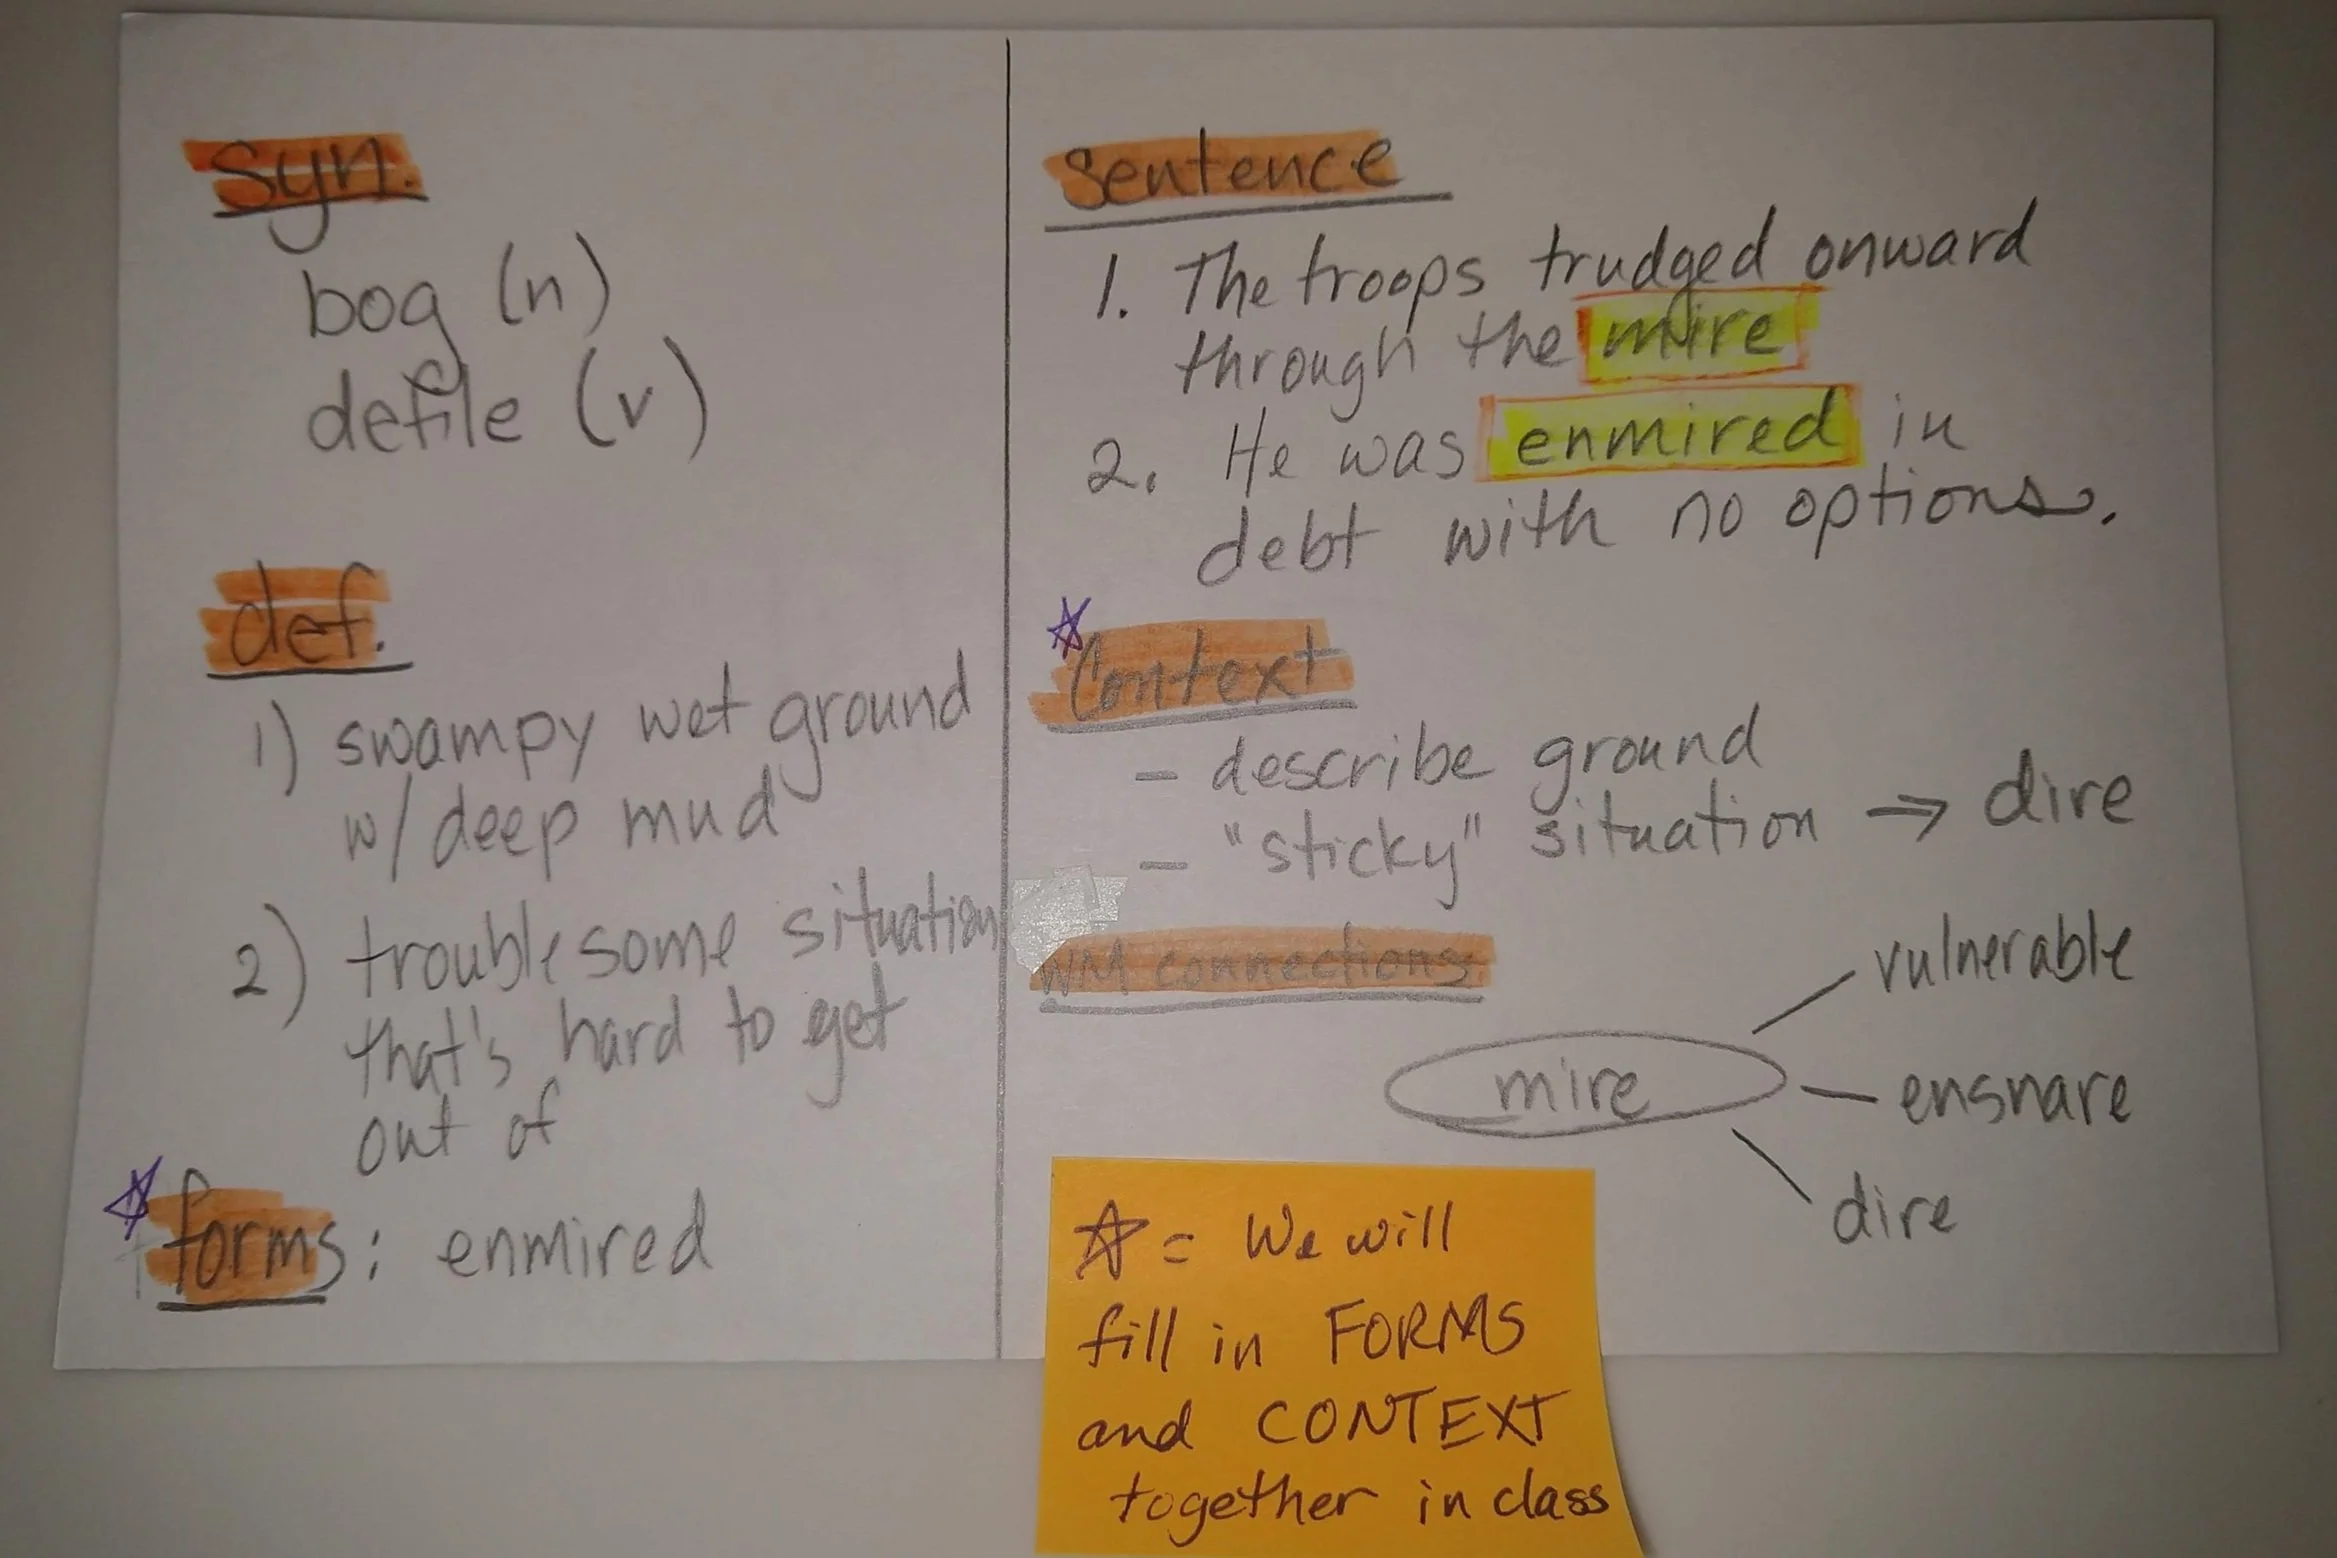 syn.
bog (n)
defile (v)
def.
1) swampy wet ground
w/ deep mud
2) troublesome situation
that's hard to get
out of
forms: enmired
Sentence
1. The troops trudged onward
through the mire
2. He was enmired in
debt with no options.
Context
- describe ground
- "sticky" situation ⇒ dire
WM connections
vulnerable
mire
ensnare
dire
☆ = We will
fill in FORMS
and CONTEXT
together in class